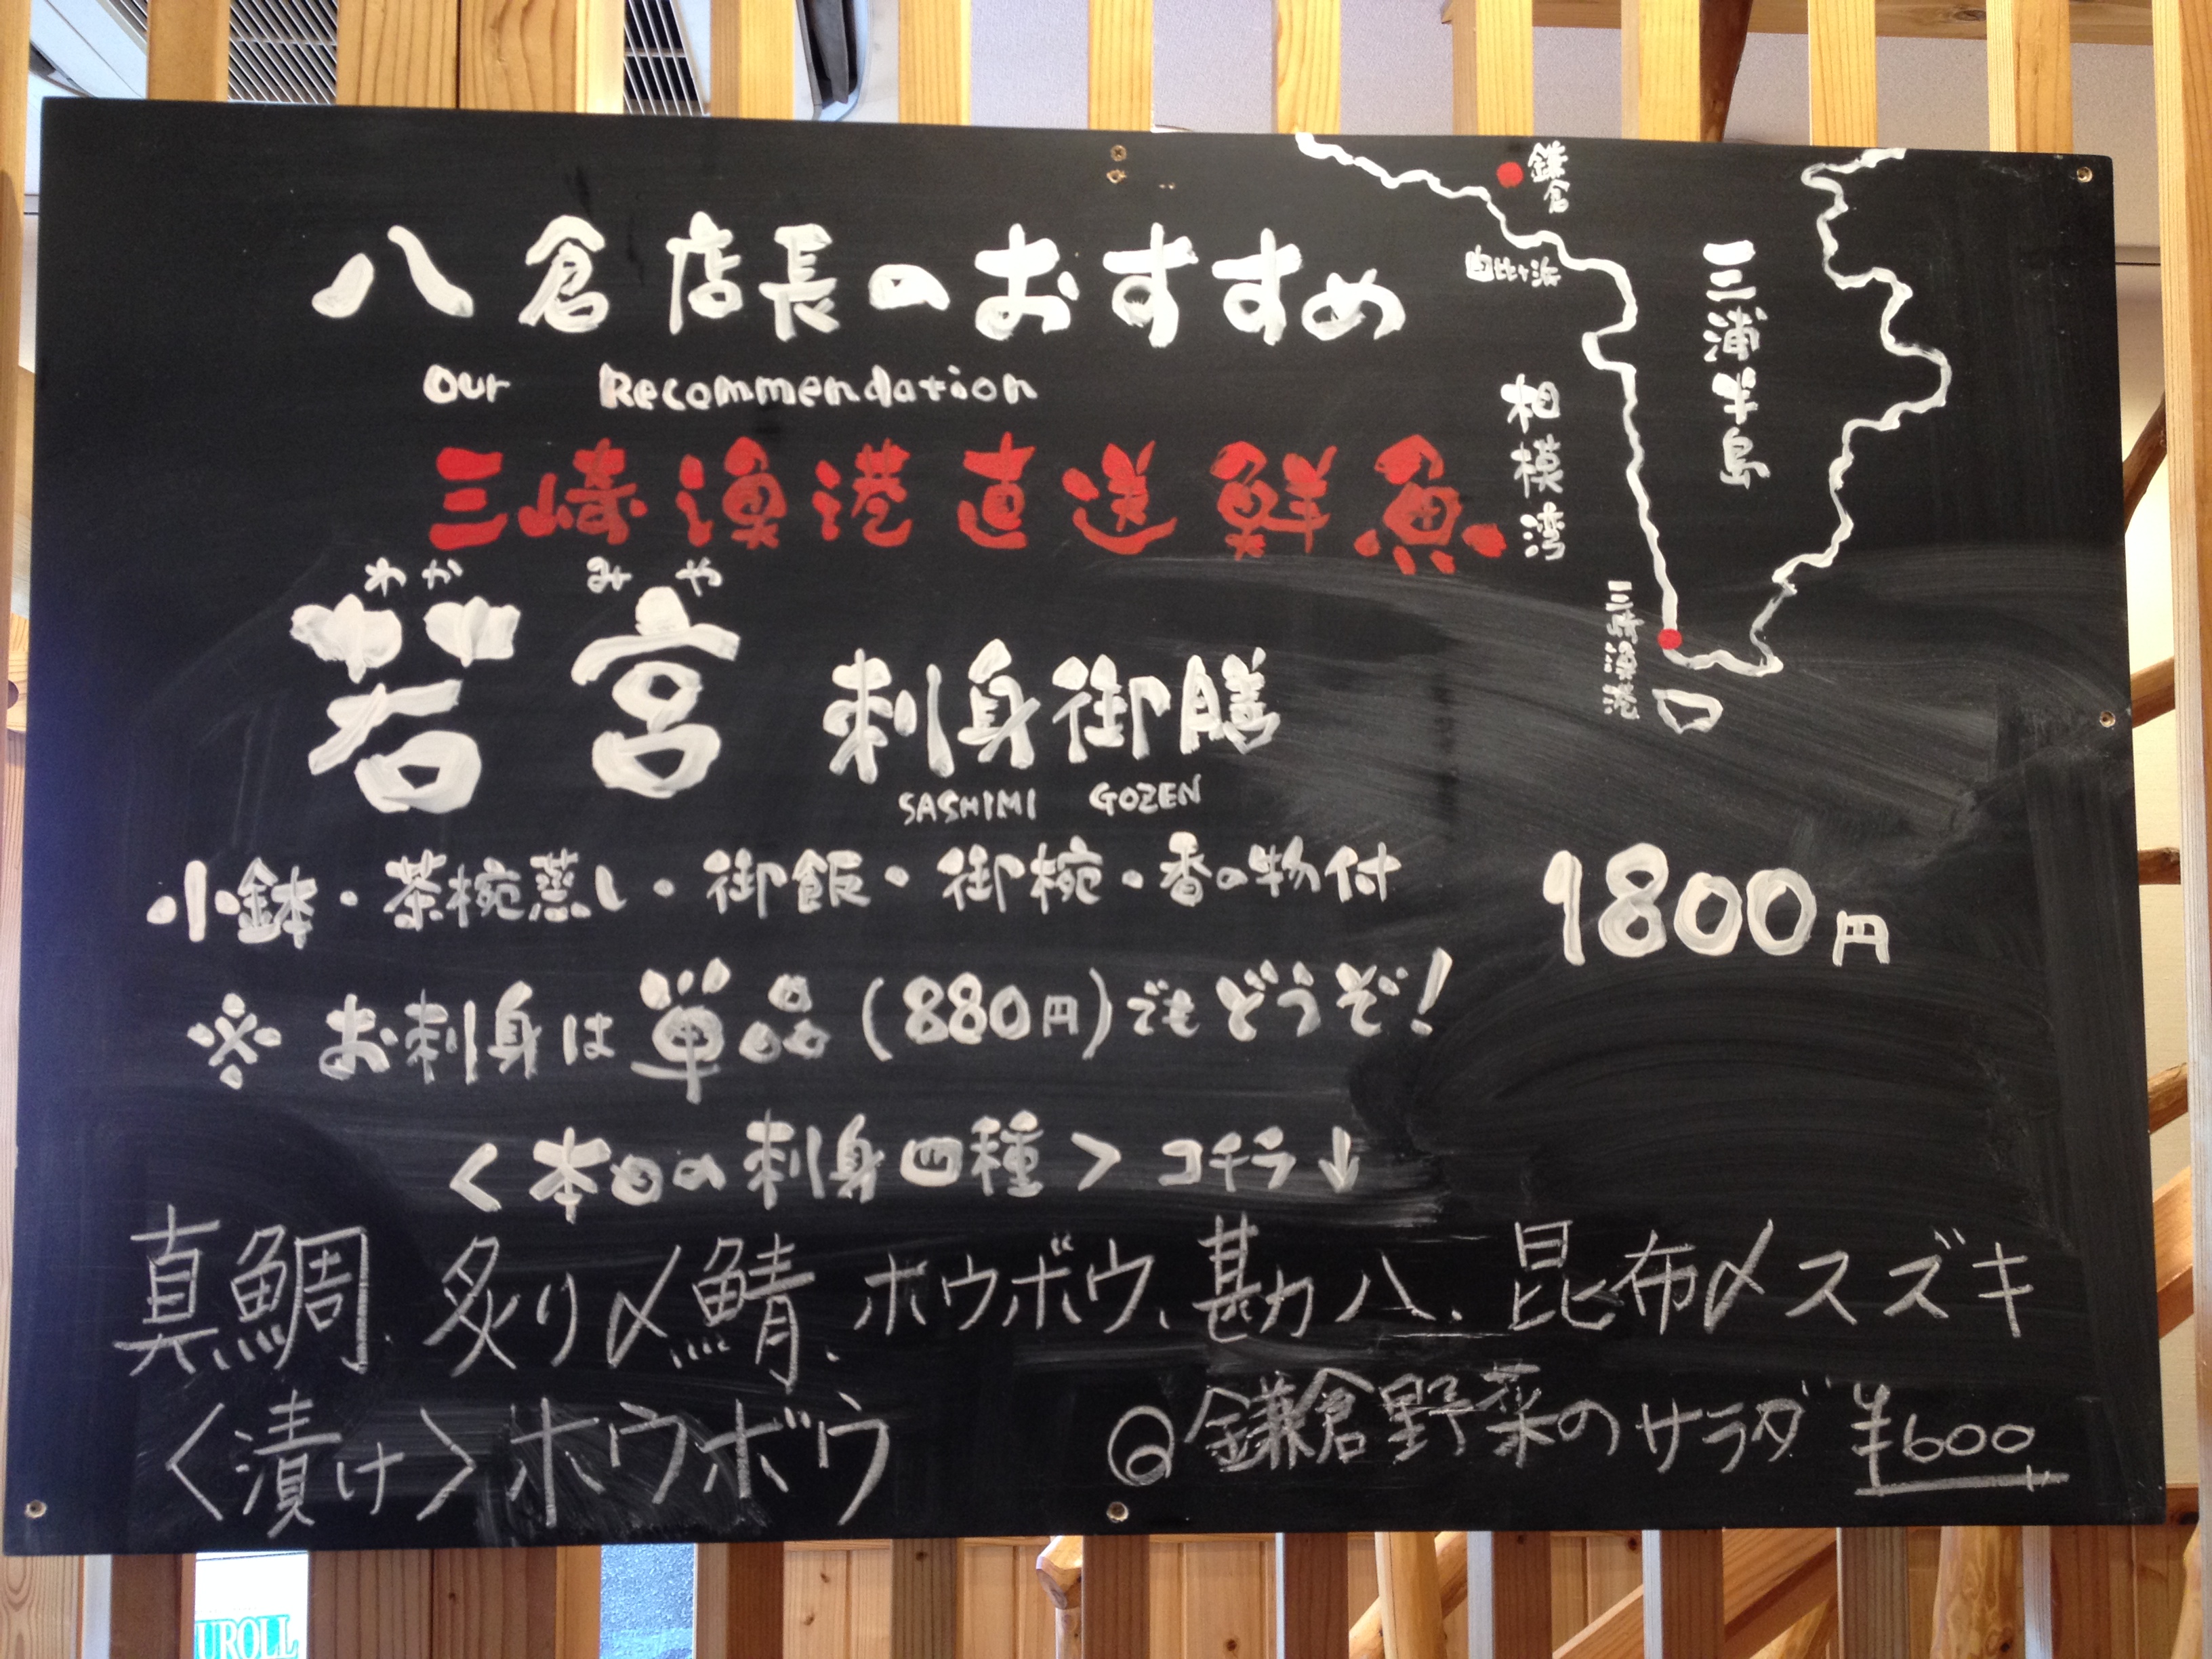 八倉店長のおすすめ
Our Recommendation
三崎漁港直送鮮魚
わか みや
若宮 刺身御膳
SASHIMI GOZEN
小鉢・茶椀蒸し・御飯・御椀・香の物付 1800円
※お刺身は単品(880円)でもどうぞ!
<本日の刺身四種>コチラ↓
真鯛、炙り〆鯖、ホウボウ、勘八、昆布〆スズキ
<漬け>ホウボウ
◎鎌倉野菜のサラダ ¥600
鎌倉
由比ヶ浜
三浦半島
相模湾
三崎漁港
UROLL